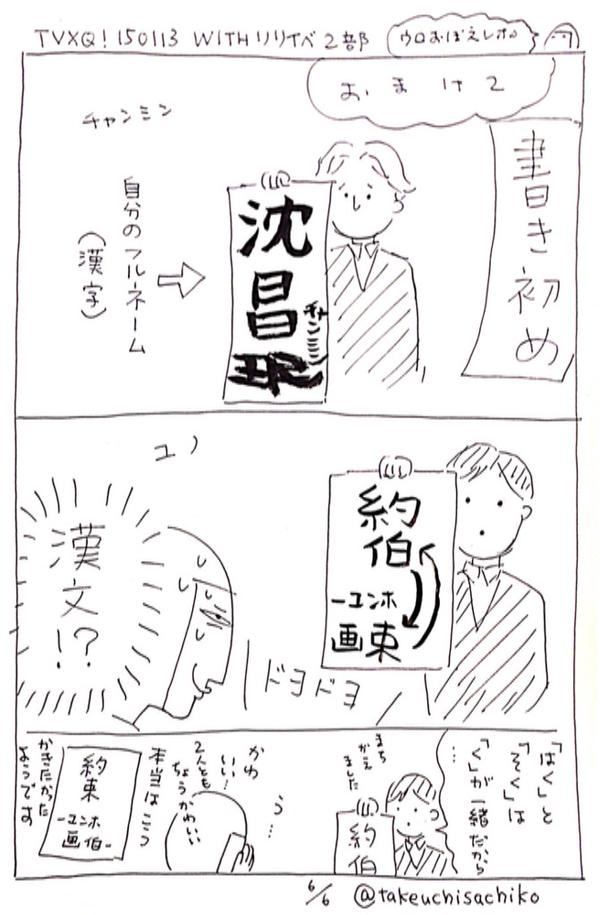 TVXQ! 150113 WITHリリイベ2部
ウロおぼえレポ
おまけ2
書き初め
チャンミン
沈昌珉
チャンミン
自分のフルネーム
(漢字)
ユノ
約
伯
-ユンホ
画東
漢文!?
ドヨドヨ
「はく」と
「そく」は
「く」が一緒だから
…
まち
がえ
ました
約
伯
う…
かわ
いい…
2人とも
ちょうかわいい
本当はこう
約
束
-ユンホ
画伯-
かきたかった
ようです
6/6 @takeuchisachiko